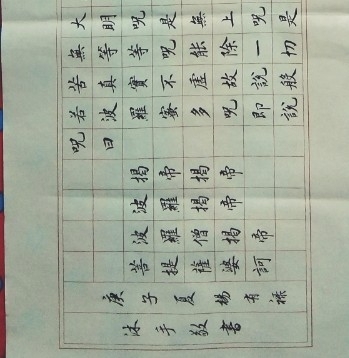 大明呪是無上呪是
無等等呪能除一切
苦真實不虛故說般
若波羅蜜多呪即說
呪曰
揭帝揭帝
波羅揭帝
波羅僧揭帝
菩提薩婆訶
庚子夏楊有
沐手敬書